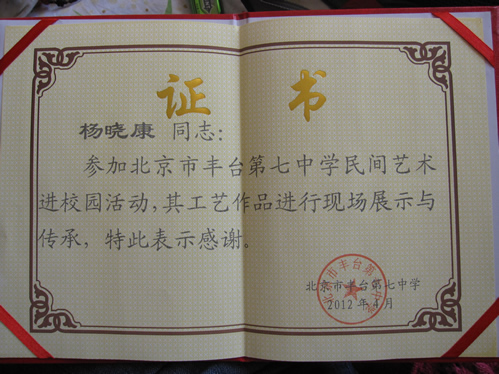 证书
杨晓康 同志：
参加北京市丰台第七中学民间艺术
进校园活动，其工艺作品进行现场展示与
传承，特此表示感谢。
北京市丰台第七中学
2012年4月
北京市丰台第七中学